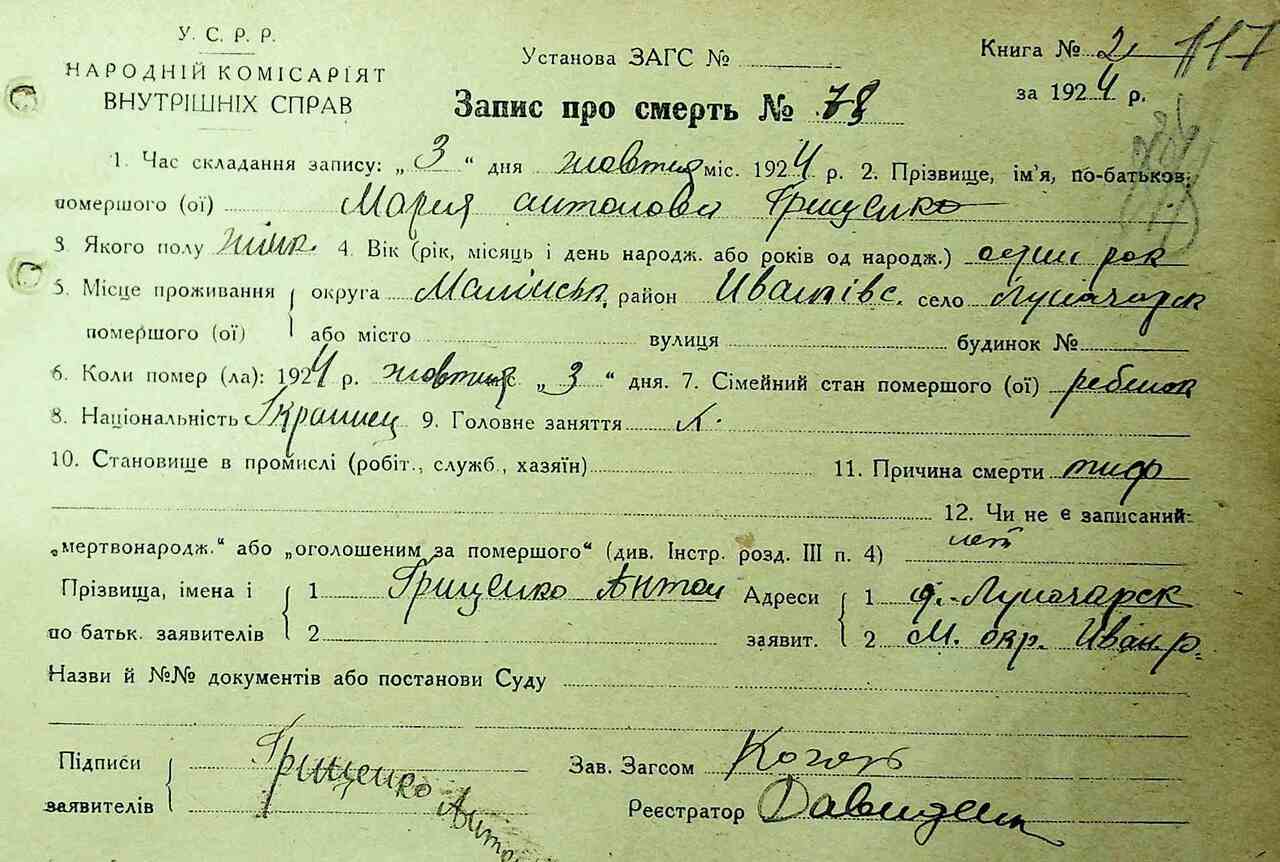 У. С. Р. Р.
НАРОДНІЙ КОМІСАРІЯТ
ВНУТРІШНІХ СПРАВ
Установа ЗАГС №
Книга № 2 117
за 1924 р.
Запис про смерть № 78
1. Час складання запису: „ 3 “ дня жовтня міс. 1924 р. 2. Прізвище, ім'я, по-батьков.
помершого (ої) Мария Антонова Грищенко
3. Якого полу жінк. 4. Вік (рік, місяць і день народж. або років од народж.) один рок
5. Місце проживання округа Малинськ. район Иванківс. село Луначарск
помершого (ої) або місто вулиця будинок №
6. Коли помер (ла): 1924 р. жовтня „ 3 “ дня. 7. Сімейний стан помершого (ої) ребенок
8. Національність Украинец 9. Головне заняття
10. Становище в промислі (робіт., служб., хазяїн) 11. Причина смерти тиф
12. Чи не є записаний:
„мертвонародж.“ або „оголошеним за помершого“ (див. Інстр. розд. III п. 4) нет
Прізвища, імена і 1 Грищенко Антон Адреси 1 с. Луначарск
по батьк. заявителів 2 заявит. 2 М. окр. Иван. р.
Назви й №№ документів або постанови Суду
Підписи Грищенко Зав. Загсом
заявителів Антон Реєстратор Давиденк